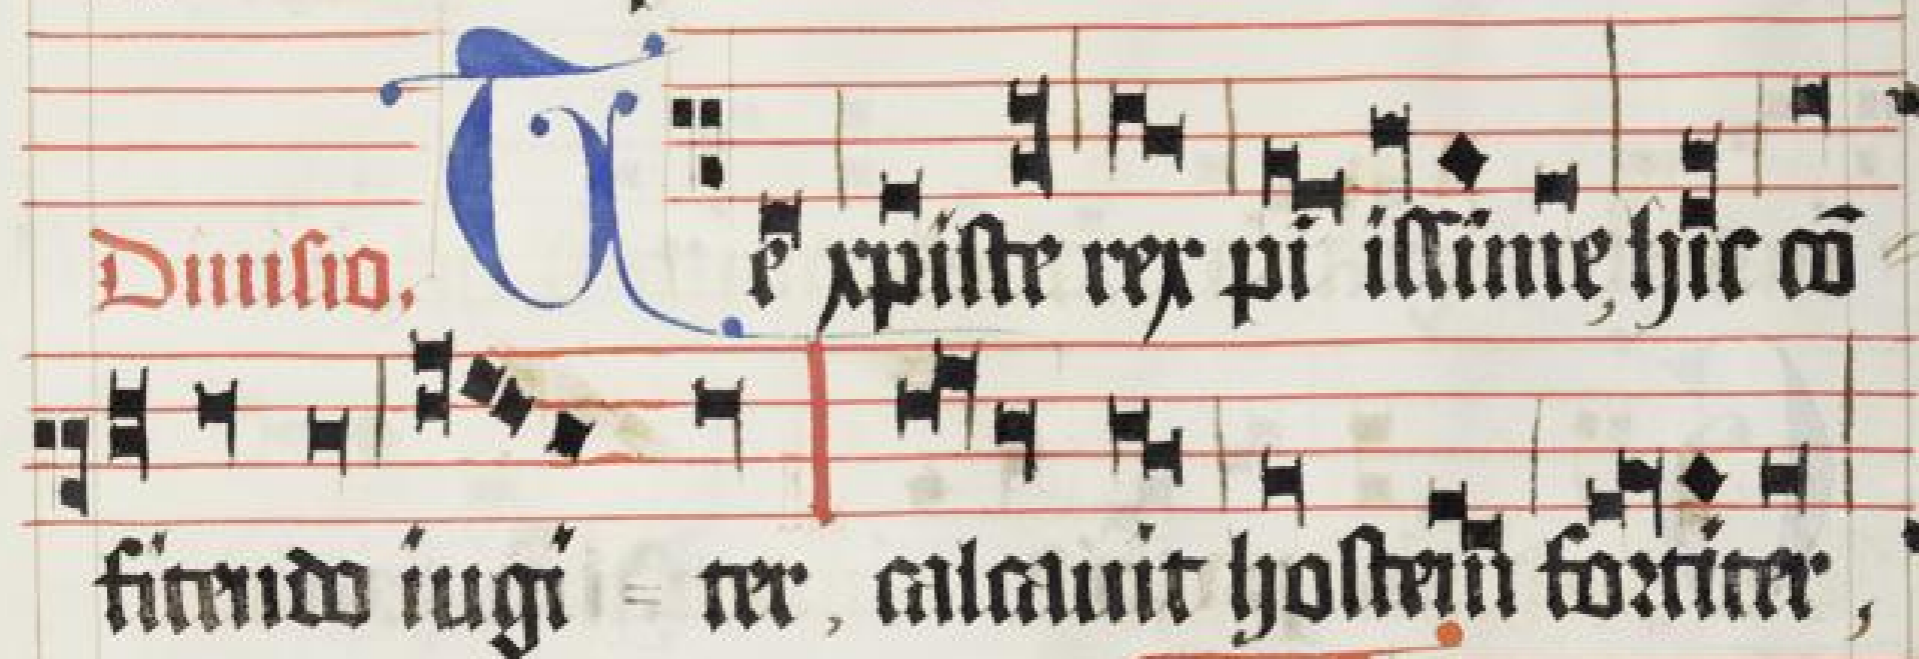 Diuisio. Te xpiste rex pi issime, hic cō
fitendo iugi = ter, calcauit hostem fortiter,